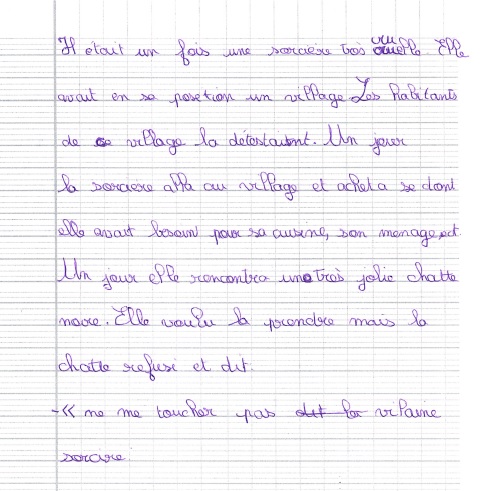 Il etait un fois une sorciere tres cruelle Elle
avait en se posetion un village Les habitants
de ce village la détestaient. Un jour
la sorciere alla au village et acheta se dont
elle avait besoin pour sa cuisine, son menage, ect.
Un jour elle rencontra une très jolie chatte
noire. Elle voulu la prendre mais la
chatte refusi et dit.
-« ne me toucher pas dit la vilaine
sorciere